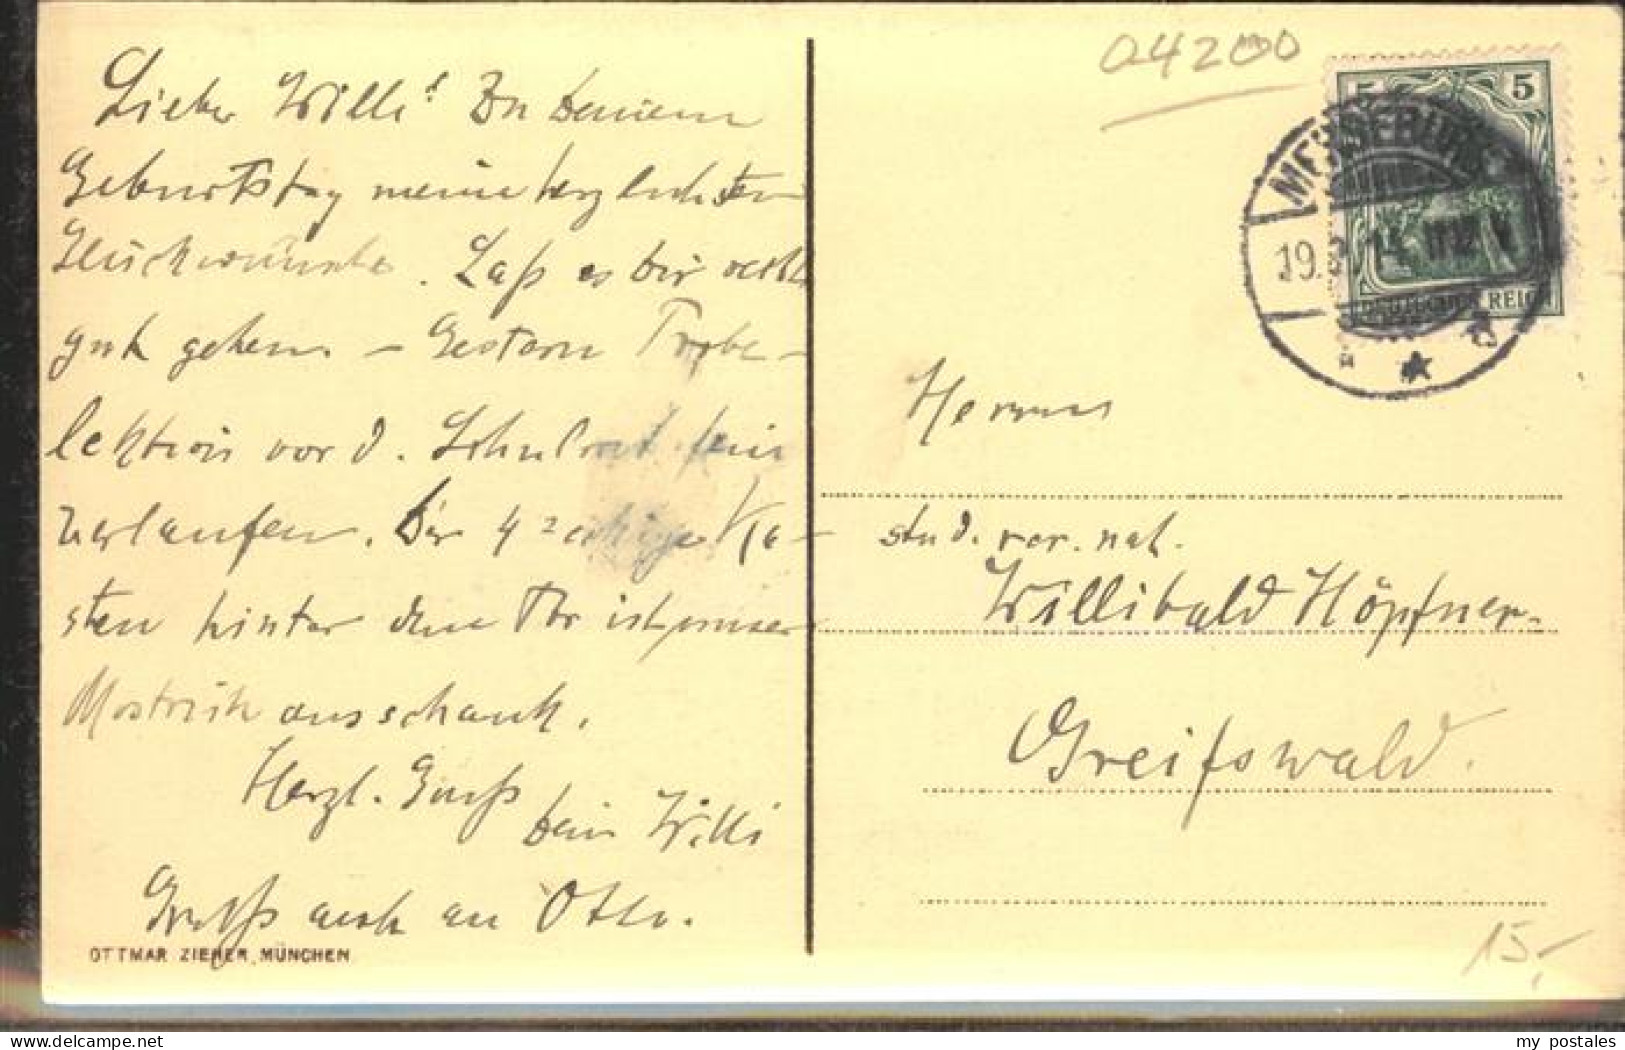 Lieber Willi! Zu Deinem
Geburtstag meine herzlichsten
Glückwünsche. Laß es dir recht
gut gehen. – Gestern Probe-
lektion vor d. Schulrat fein
verlaufen. Der 4 eckige Ka-
sten hinter dem Tor ist unser
Mostrichausschank.
Herzl. Gruß
Dein Willi
Gruß auch an Otto.
OTTMAR ZIEHER, MÜNCHEN
04200
5 5
DEUTSCHES REICH
MERSEBURG
19.
Herrn
stud. rer. nat.
Willibald Höpfner
Greifswald.
15,-
my postales